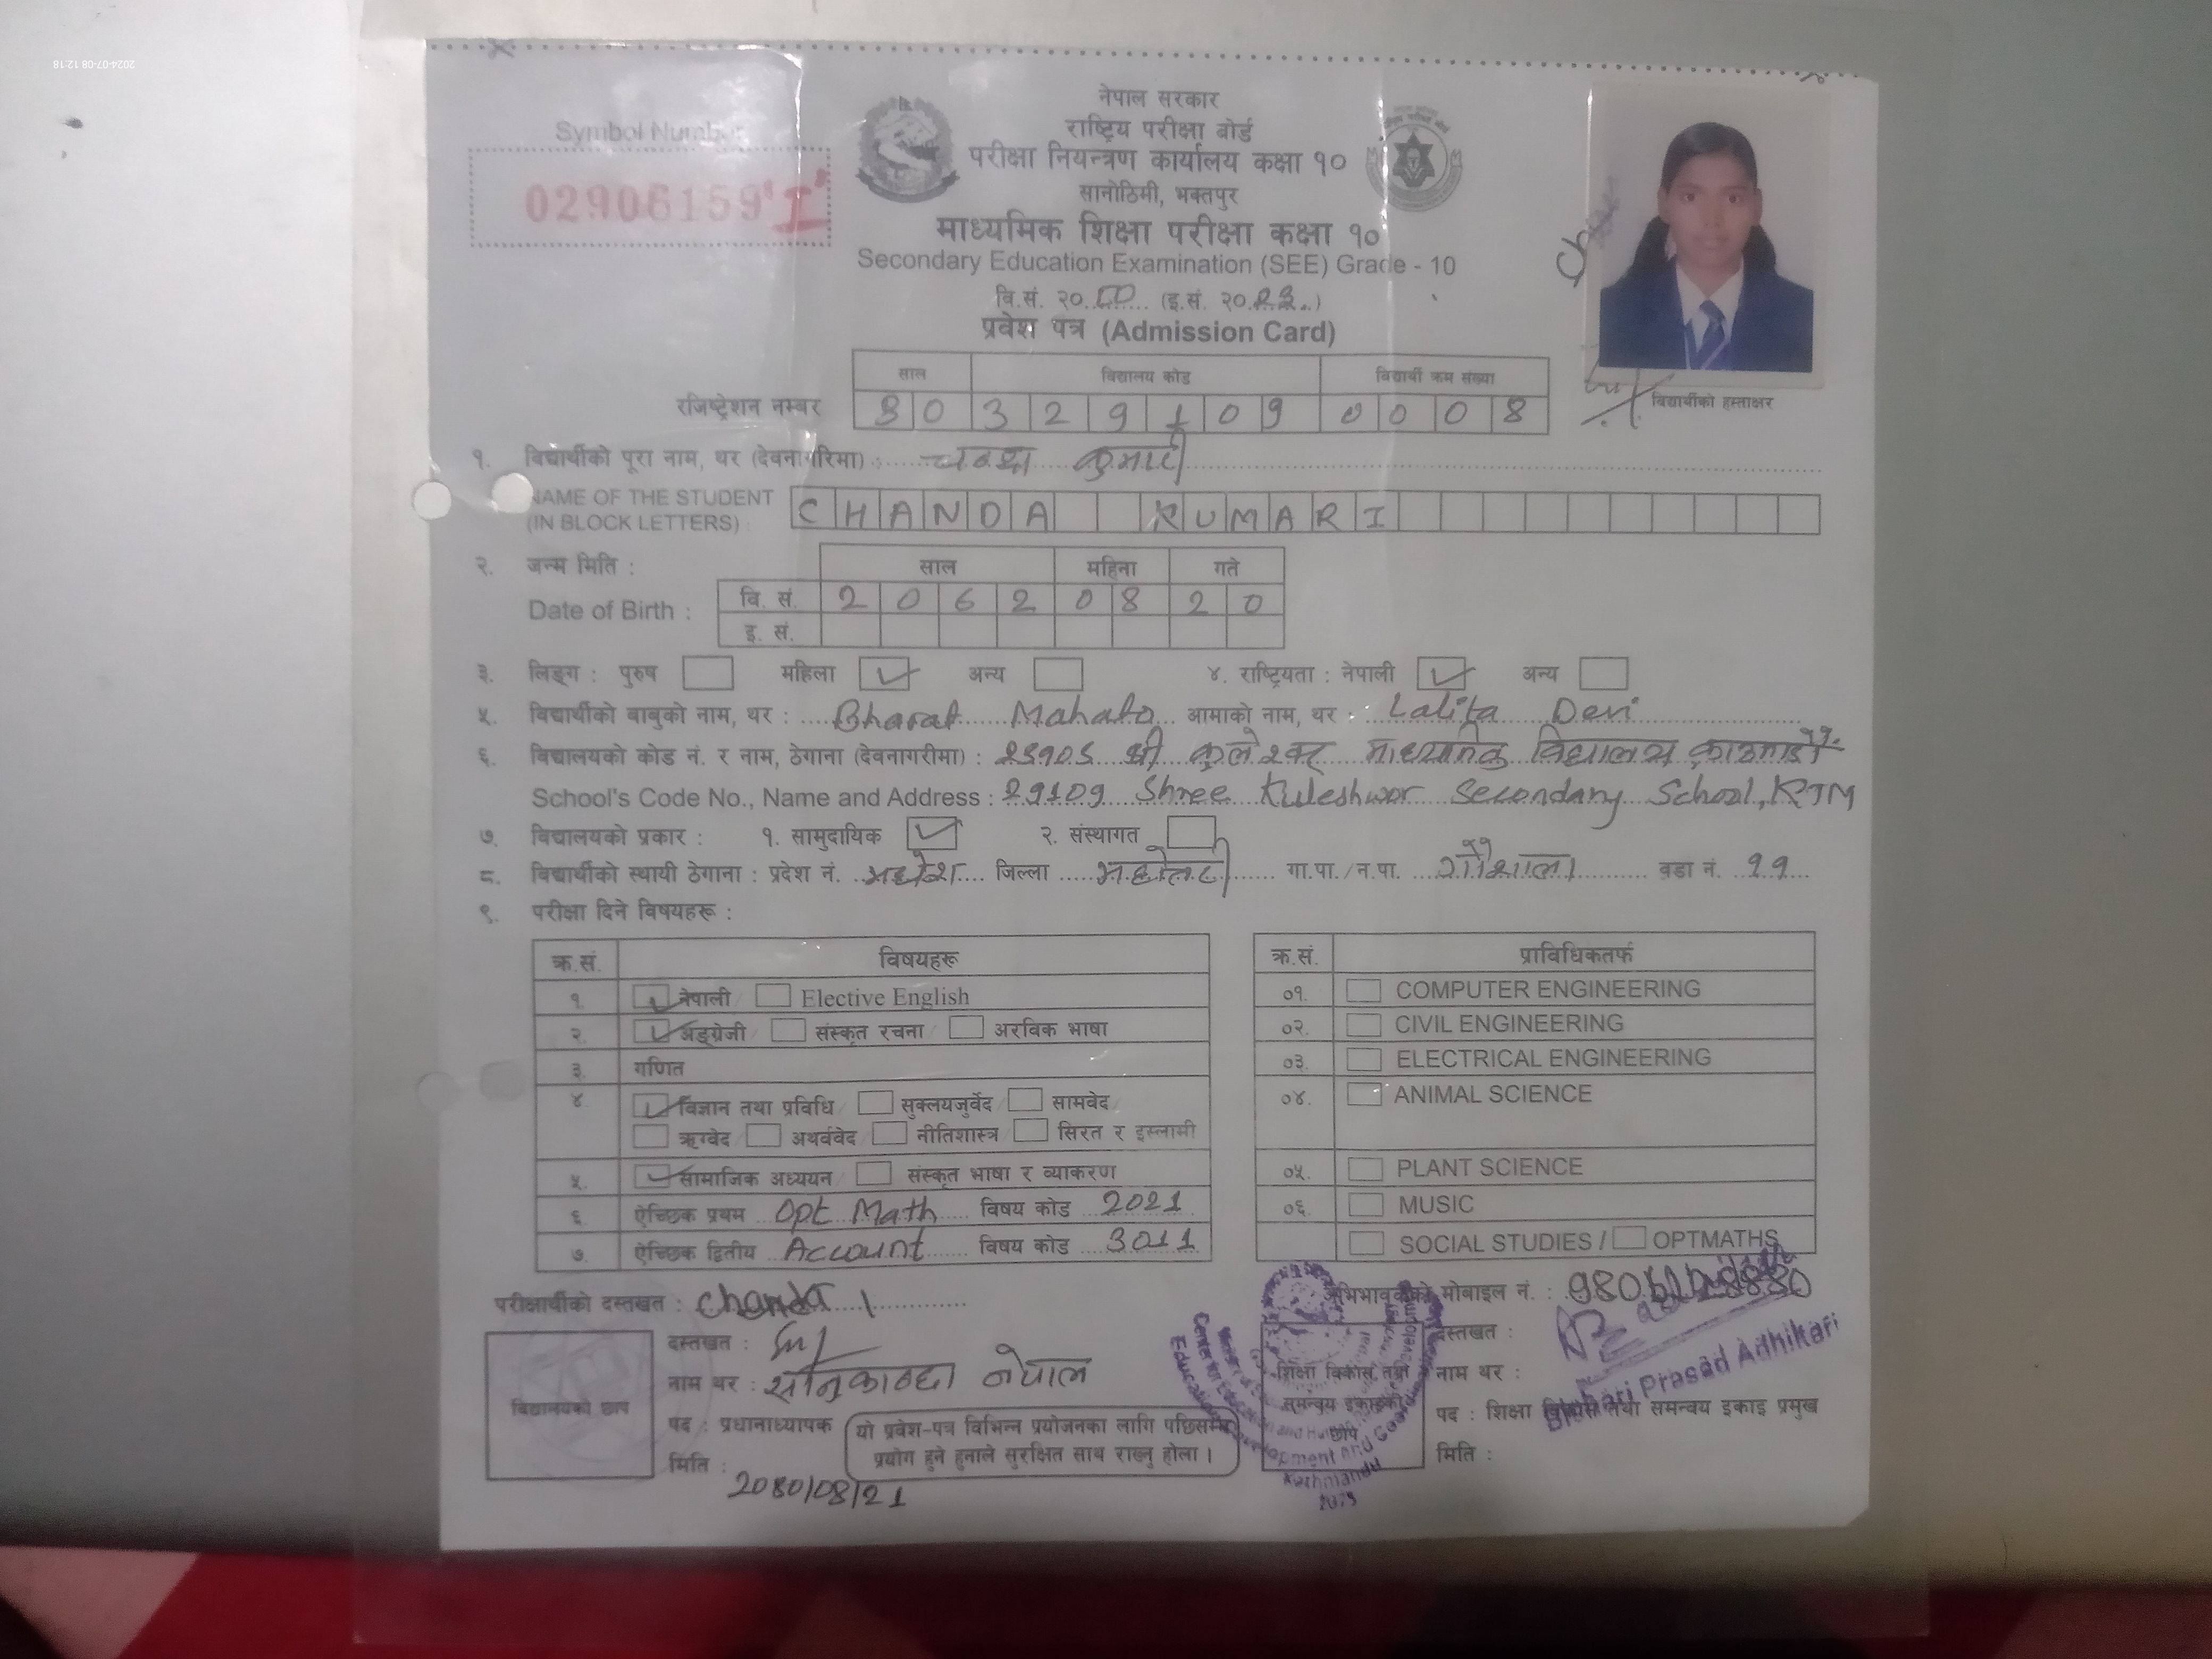 2024-07-08 12:18
Symbol Number
02906159 'I'
नेपाल सरकार
राष्ट्रिय परीक्षा बोर्ड
परीक्षा नियन्त्रण कार्यालय कक्षा १०
सानोठिमी, भक्तपुर
माध्यमिक शिक्षा परीक्षा कक्षा १०
Secondary Education Examination (SEE) Grade - 10
वि.सं. २०८० (इ.सं. २०२३.)
प्रवेश पत्र (Admission Card)
साल विद्यालय कोड विद्यार्थी क्रम संख्या
रजिष्ट्रेशन नम्बर 8 0 3 2 9 1 0 9 0 0 0 8
विद्यार्थीको हस्ताक्षर
१. विद्यार्थीको पूरा नाम, थर (देवनागरिमा) : चन्दा कुमारी
NAME OF THE STUDENT (IN BLOCK LETTERS) : CHANDA KUMARI
२. जन्म मिति : साल महिना गते
Date of Birth : वि. सं. 2 0 6 2 0 8 2 0
इ. सं.
३. लिङ्ग : पुरुष महिला ✓ अन्य ४. राष्ट्रियता : नेपाली ✓ अन्य
५. विद्यार्थीको बाबुको नाम, थर : Bharat Mahato आमाको नाम, थर : Lalita Devi
६. विद्यालयको कोड नं. र नाम, ठेगाना (देवनागरीमा) : श्री कुलेश्वर माध्यमिक विद्यालय काठमाडौं
School's Code No., Name and Address : 29109 Shree Kuleshwor Secondary School, KTM
७. विद्यालयको प्रकार : १. सामुदायिक ✓ २. संस्थागत
८. विद्यार्थीको स्थायी ठेगाना : प्रदेश नं. मधेश जिल्ला महोत्तरी गा.पा./न.पा. गौशाला वडा नं. ११
९. परीक्षा दिने विषयहरू :
क्र.सं. विषयहरू
१. ✓ नेपाली Elective English
२. ✓ अङ्ग्रेजी संस्कृत रचना अरविक भाषा
३. गणित
४ ✓ विज्ञान तथा प्रविधि सुक्लयजुर्वेद सामवेद
ऋग्वेद अथर्ववेद नीतिशास्त्र सिरत र इस्लामी
५. ✓ सामाजिक अध्ययन संस्कृत भाषा र व्याकरण
६ ऐच्छिक प्रथम Opt Math विषय कोड 2021
७. ऐच्छिक द्वितीय Account विषय कोड 3011
क्र.सं. प्राविधिकतर्फ
०१. COMPUTER ENGINEERING
०२. CIVIL ENGINEERING
०३. ELECTRICAL ENGINEERING
०४. ANIMAL SCIENCE
०५. PLANT SCIENCE
०६. MUSIC
SOCIAL STUDIES / OPTMATHS
परीक्षार्थीको दस्तखत : Chanda
अभिभावकको मोबाइल नं. :
विद्यालयको छाप
दस्तखत :
नाम थर : नेपाल
पद : प्रधानाध्यापक
मिति : 2080/08/21
यो प्रवेश-पत्र विभिन्न प्रयोजनका लागि पछिसम्म
प्रयोग हुने हुनाले सुरक्षित साथ राख्नु होला ।
शिक्षा विकास तथा
समन्वय इकाइको
छाप
Kathmandu
2075
दस्तखत :
नाम थर : Prasad Adhikari
पद : शिक्षा विकास तथा समन्वय इकाइ प्रमुख
मिति :